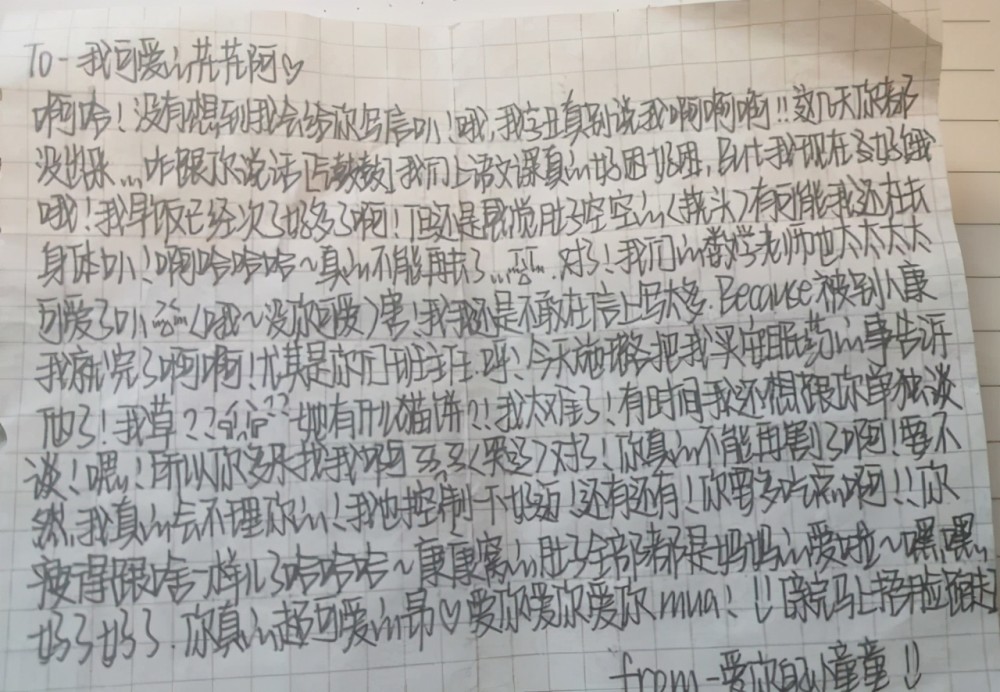 To-我可爱in花花阿♡
啊哈!没有想到我会给你写信叭!哦,我字丑真别说我啊啊啊!!这几天你都
没出来...咋跟你说话[气鼓鼓]我们上语文课真in好困好困,But我现在多好饿
哦!我早饭已经次了好多了啊!还是感觉肚子空空in(挠头)有可能我还在长
身体叭!啊哈哈哈~真in不能再长了...对了!我们in数学老师也太太太太
可爱了叭(哦~没你可爱)害!我还是不敢在信上写太多.Because被别人康
我就完了啊啊!尤其是你们班主任.呼、今天她把我买安眠药in事告诉
他了!我草??她有什么猫饼?!我太难了!有时间我还想跟你单独谈
谈!嗯!所以你多来找我啊(哭了)对了!你真in不能再割了啊!要不
然,我真in会不理你in!我也控制一下好迈!还有还有!你要多吃点啊!!你
瘦得跟啥一样儿了哈哈哈~康康窝in肚子全部都是妈妈in爱啦~嘿嘿,
好了好了.你真in超可爱in昂♡爱你爱你爱你mua!!!
from-爱你的小童童!!